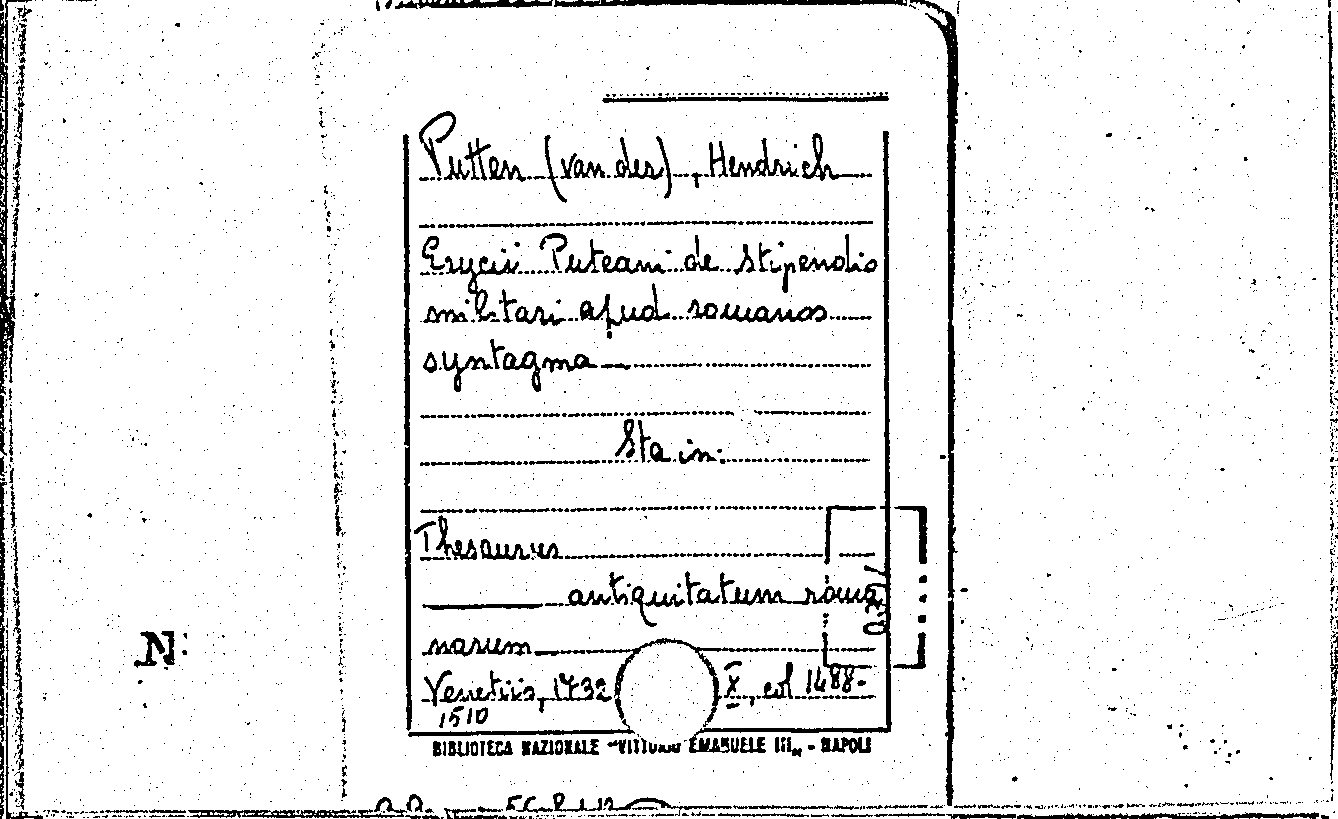 Putten (van der), Hendrich
Erycii Puteani de stipendio
militari apud romanos
syntagma
Sta in:
Thesaurus
antiquitatum roma
narum
Venetiis, 1732 X, col 1488-
1510
BIBLIOTECA NAZIONALE "VITTORIO EMANUELE III" - NAPOLI
N